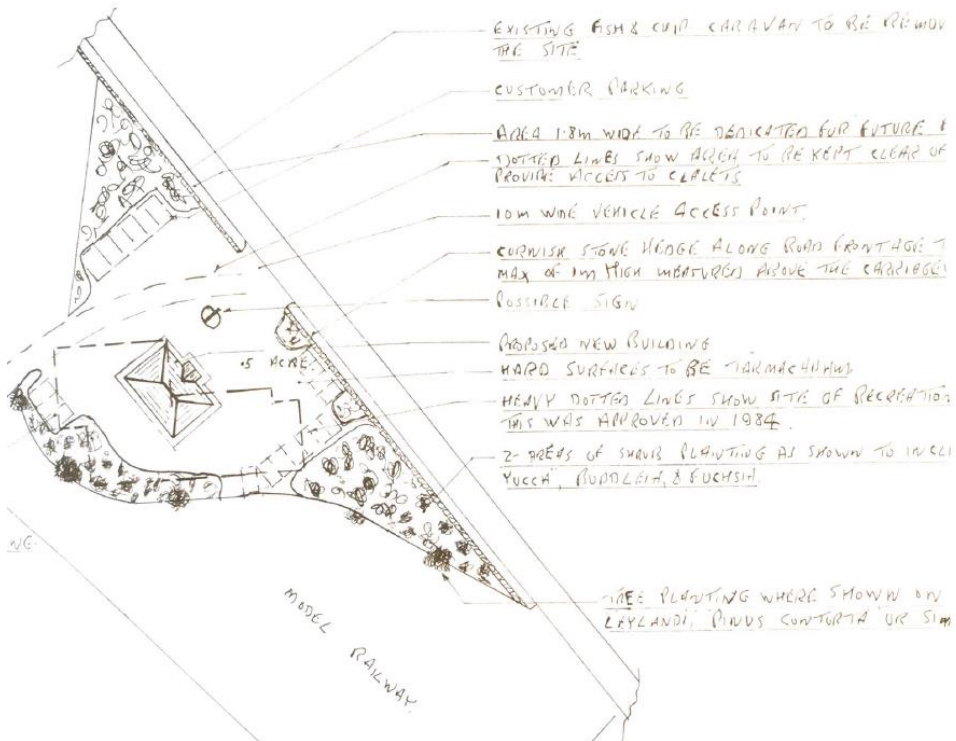 EXISTING FISH & CHIP CARAVAN TO BE REMOV
THE SITE
CUSTOMER PARKING
AREA 1.8m WIDE TO BE DEDICATED FOR FUTURE
DOTTED LINES SHOW AREA TO BE KEPT CLEAR OF
PROVIDE ACCESS TO CHALETS
10m WIDE VEHICLE ACCESS POINT.
CORNISH STONE HEDGE ALONG ROAD FRONTAGE T
MAX OF 1m HIGH MEASURED ABOVE THE CARRIAGE
POSSIBLE SIGN
PROPOSED NEW BUILDING
.5 ACRE.
HARD SURFACES TO BE
HEAVY DOTTED LINES SHOW SITE OF RECREATION
THIS WAS APPROVED IN 1984.
2- AREAS OF SHRUB PLANTING AS SHOWN TO INCL
YUCCA, BUDDLEIA, & FUCHSIA.
NG.
TREE PLANTING WHERE SHOWN ON
LEYLANDI, PINUS CONTORTA OR SIM
MODEL
RAILWAY.